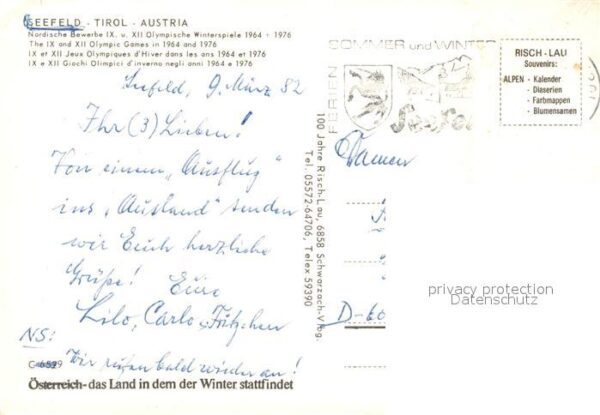 SEEFELD - TIROL - AUSTRIA
Nordische Bewerbe IX. u. XII Olympische Winterspiele 1964 + 1976
The IX and XII Olympic Games in 1964 and 1976
IX et XII Jeux Olympiques d'Hiver dans les ans 1964 et 1976
IX e XII Giochi Olimpici d'inverno negli anni 1964 e 1976
Seefeld, 9. März 82
Ihr (3) Lieben!
Von einem "Ausflug"
ins "Ausland" senden
wir Euch herzliche
Grüße! Eure
Lilo, Carlo, Fritzchen
NS:
Wir rufen bald wieder an!
Österreich - das Land in dem der Winter stattfindet
100 Jahre Risch-Lau, 6858 Schwarzach-Vlbg.
Tel. 05572-64706, Telex 59390
FERIEN
SOMMER und WINTER
Seefel
RISCH - LAU
Souvenirs:
ALPEN - Kalender
- Diaserien
- Farbmappen
- Blumensamen
D-60
privacy protection
Datenschutz